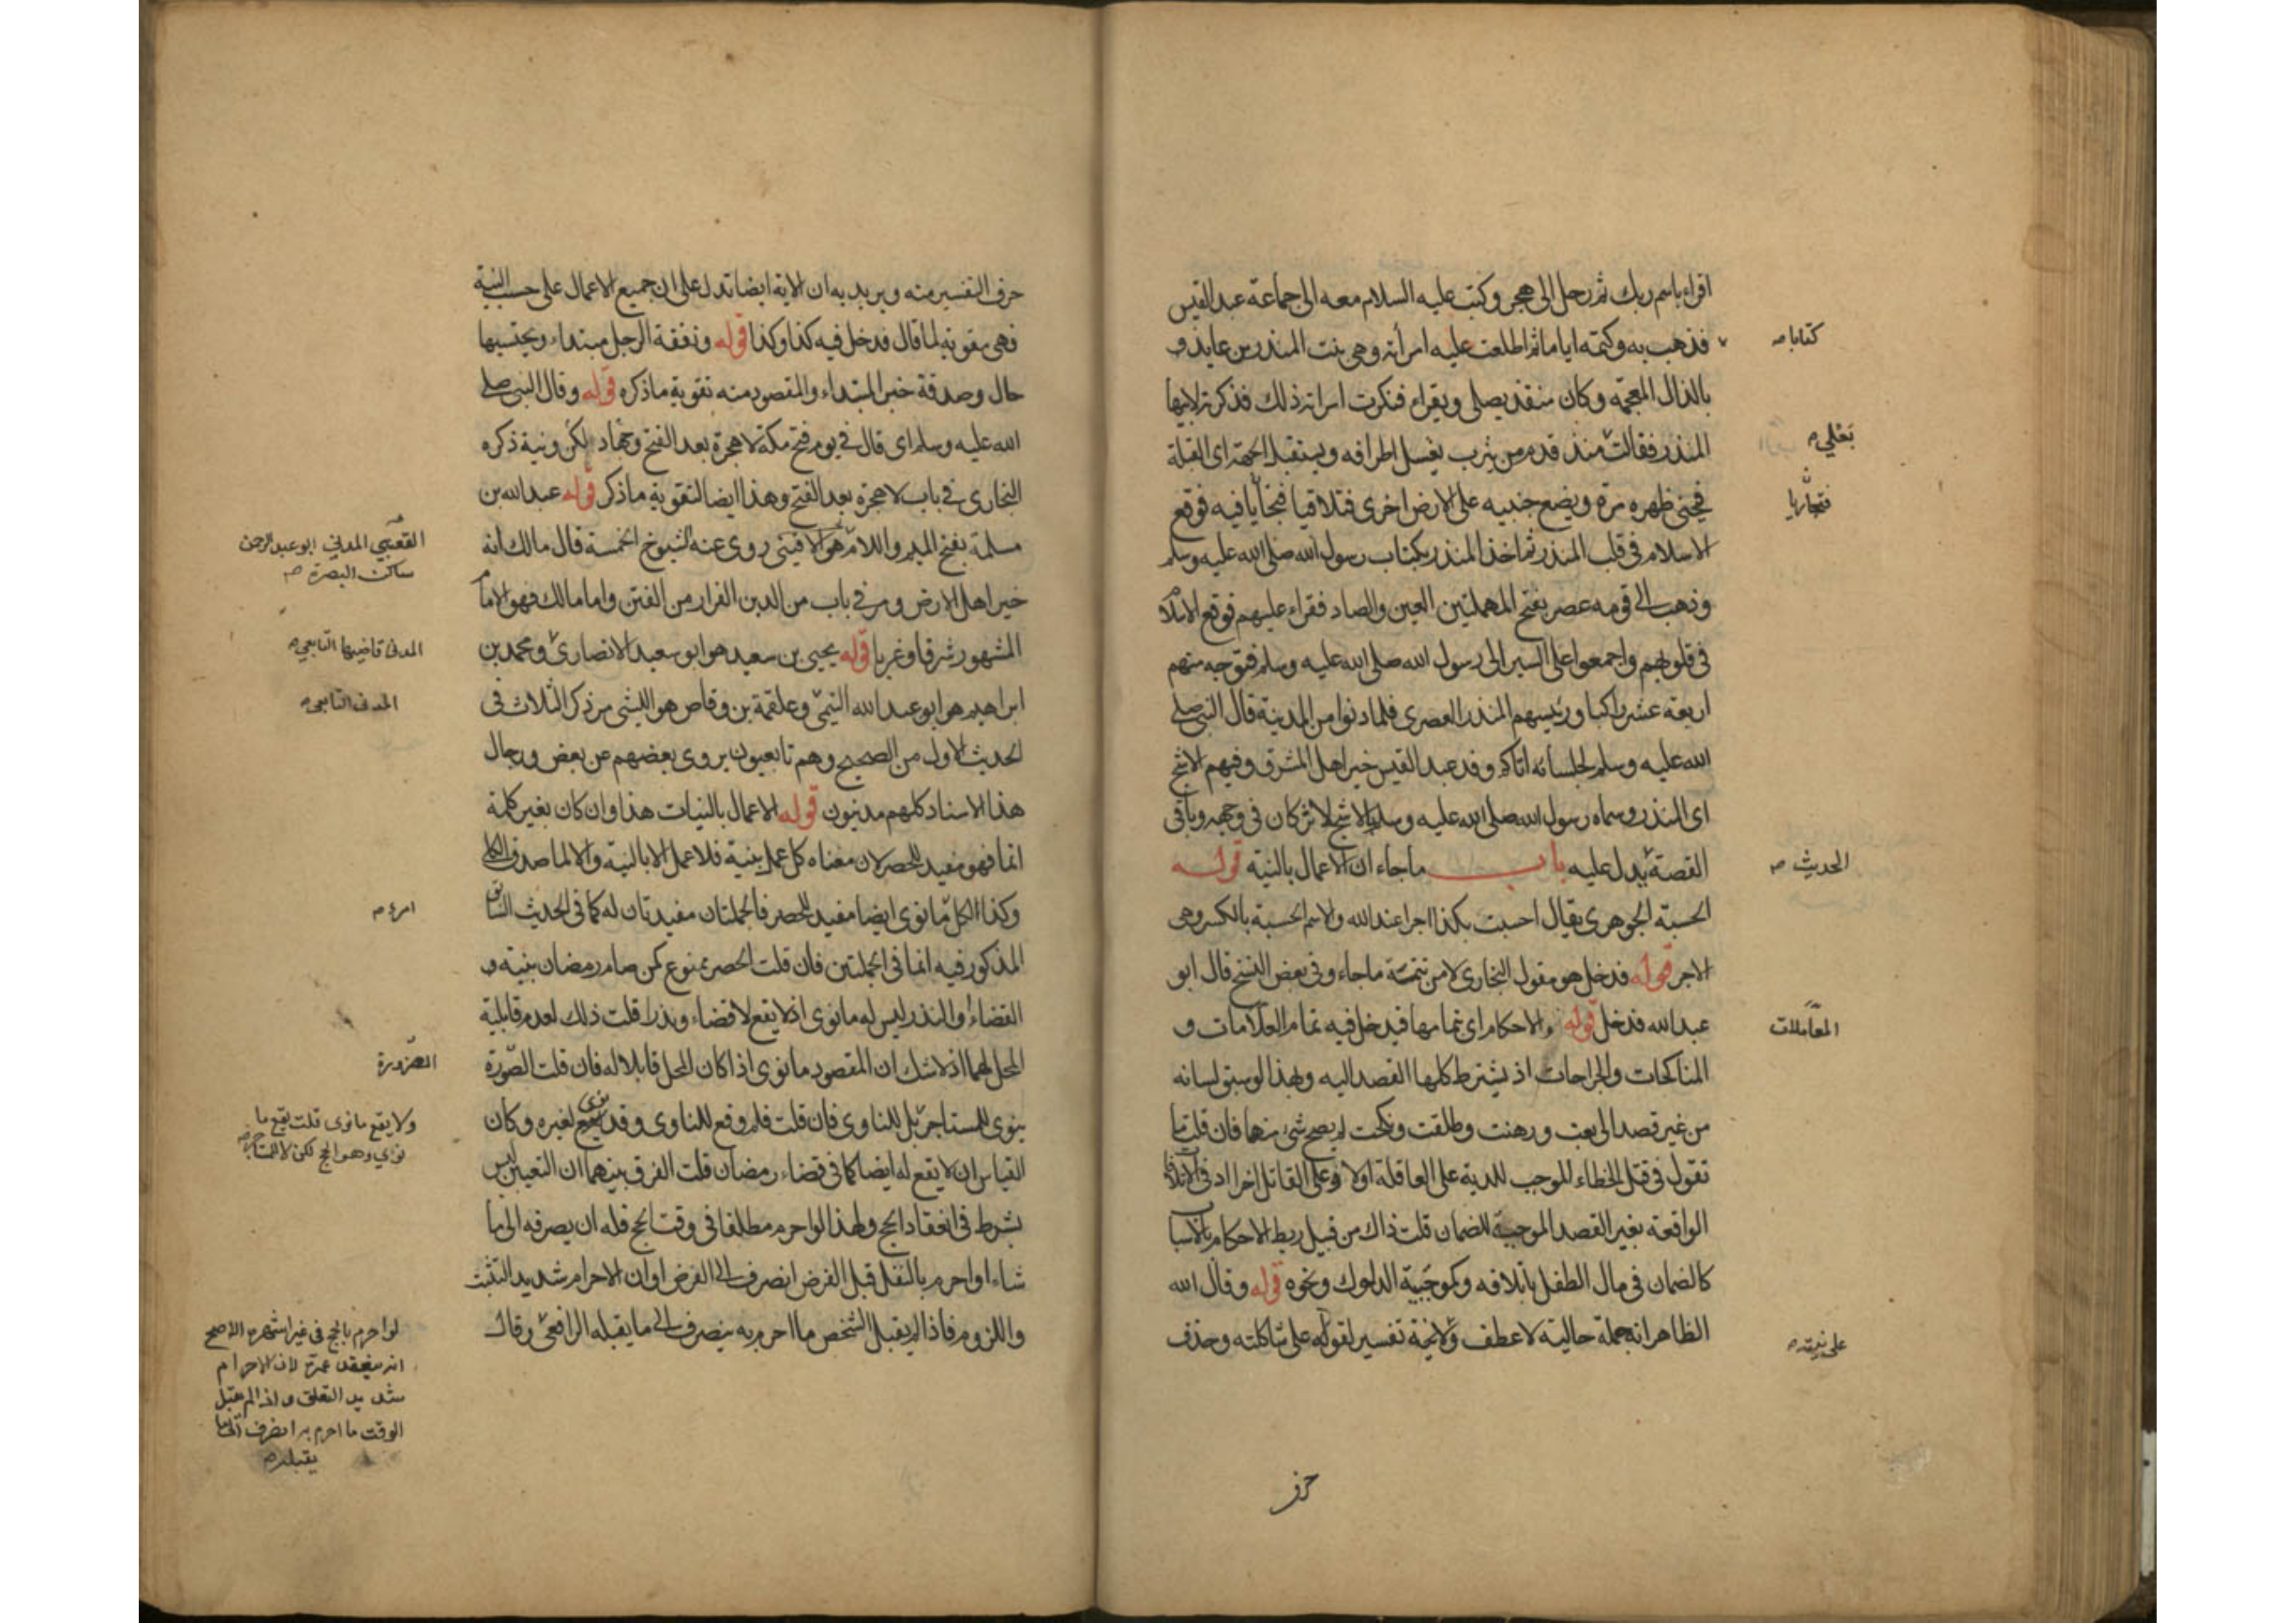 اقراء باسم ربك ثم رحل الى هجر وكتب عليه السلام معه الى جماعة عبد القيس
كتابا صح
فذهب به وكتمه اياما ثم اطلعت عليه امرأته وهى بنت المنذر بن عايذ و
بالذال المعجمة وكان منقذ يصلى ويقراء فنكرت امراته ذلك فذكرته لابيها
بعلي صح
المنذر فقالت منذ قدم من يثرب يغسل اطرافه ويستقبل الجهة اى القبلة
فتجاريا
فيحنى ظهره مرة ويضع جنبيه على الارض اخرى فتلاقيا فيه فوقع
الاسلام فى قلب المنذر ثم اخذ المنذر بكتاب رسول الله صلى الله عليه وسلم
وذهب الى قومه عصر بفتح المهملتين العين والصاد فقراء عليهم فوقع الاسلام
فى قلوبهم واجمعوا على السير الى رسول الله صلى الله عليه وسلم فتوجه منهم
اربعة عشر راكبا ورئيسهم المنذر العصرى فلما دنوا من المدينة قال النبى صلى
الله عليه وسلم لجلسائه اتاكم وفد عبد القيس خير اهل المشرق وفيهم الاشج
اى المنذر وسماه رسول الله صلى الله عليه وسلم بالاشج لاثر كان فى وجهه وباقى
القصة يدل عليه باب ماجاء ان الاعمال بالنية قوله
الحديث صح
الحسبة الجوهرى يقال احسبت بكذا اجرا عند الله والاسم الحسبة بالكسر وهى
الاجر قوله فدخل هو مقول البخارى لا من تتمة ماجاء وفى بعض النسخ قال ابو
عبد الله فدخل قوله والاحكام اى تمامها فيدخل فيه تمام العلامات و
المعاملات
المناكحات والجراحات اذ يشترط كلها القصد اليه ولهذا لو سبق لسانه
من غير قصد الى بعت ورهنت وطلقت ونكحت لم يصح شئ منها فان قلت ما
تقول فى قتل الخطاء الموجب للدية على العاقلة اولا وعلى القاتل
الواقعة بغير القصد الموجبة للضمان قلت ذاك من قبيل ربط الاحكام بالاسباب
كالضمان فى مال الطفل باتلافه وكموجبية الدلوك ونحوه قوله وقال الله
الظاهر انه جملة حالية لا عطف تفسير لقوله على شاكلته وحذف
على نيته صح
حرف
حرف التفسير منه ويريد به ان الاية ايضا تدل على ان جميع الاعمال على حسب النية
فهى مقوية لما قال فدخل فيه كذا وكذا قوله ونفقة الرجل مبتداء ويحتسبها
حال وصدقة خبر المبتداء والمقصود منه تقوية ماذكره قوله وقال النبى صلى
الله عليه وسلم اى قال فى يوم فتح مكة لا هجرة بعد الفتح وجهاد لكن ونية ذكره
البخارى فى باب لا هجرة بعد الفتح وهذا ايضا لتقوية ماذكر قوله عبد الله بن
القعنبي المدني ابو عبد الرحمن
ساكن البصرة صح
مسلمة بفتح الميم واللام هو روى عنه الشيوخ الخمسة قال مالك انه
خير اهل الارض ومر فى باب من الدين الفرار من الفتن واما مالك فهو الامام
المشهور شرقا وغربا قوله يحيى بن سعيد هو ابو سعيد الانصارى ومحمد بن
المدنى قاضيها التابعي صح
ابراهيم هو ابو عبد الله التيمى وعلقمة بن وقاص هو الليثى مر ذكر الثلاث فى
المدنى التابعى صح
الحديث الاول من الصحيح وهم تابعيون يروى بعضهم عن بعض ورجال
هذا الاسناد كلهم مدنيون قوله الاعمال بالنيات هذا وان كان بغير كلمة
انما فهو مفيد للحصر لان معناه كل عمل بنية فلا عمل الا بالنية والا لما صدق الكلى
وكذا لكل ما نوى ايضا مفيد للحصر فالجملتان مفيدتان له كما فى الحديث السابق
امرء صح
المذكور فيه انما فى الجملتين فان قلت الحصر ممنوع كمن صام رمضان بنية
القضاء والنذر ليس له ما نوى اذ لا يقع لا قضاء ونذرا قلت ذلك لعدم قابلية
المحل لهما اذ لا شك ان المقصود ما نوى اذا كان المحل قابلا له فان قلت الصرورة
الصرورة
ينوى للمستاجر بل للناوى فان قلت فلم وقع للناوى وقد نوى لغيره وكان
ولا يقع ما نوى قلت يقع ما
نوى وهو الحج لكن لا للمستاجر صح
القياس ان لا يقع له ايضا كما فى قضاء رمضان قلت الفرق بينهما ان التعيين ليس
بشرط فى انعقاد الحج ولهذا لو احرم مطلقا فى وقت الحج فله ان يصرفه الى ما
شاء او احرم بالنفل قبل الفرض انصرف الى الفرض او ان الاحرام شديد التشبث
واللزوم فاذا لم يقبل الشخص ما احرم به ينصرف الى ما يقبله الرافعى وقال
لو احرم بالحج فى غير اشهره الاصح
انه ينعقد عمرة لان الاحرام
شديد التعلق واذا لم يقبل
الوقت ما احرم به انصرف الى ما
يقبله صح